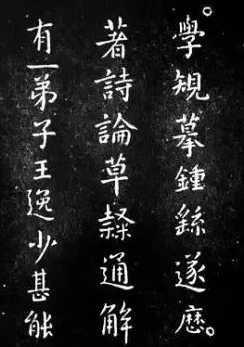 學規摹鍾繇遂歷
著詩論草隸通解
有一弟子王逸少甚能